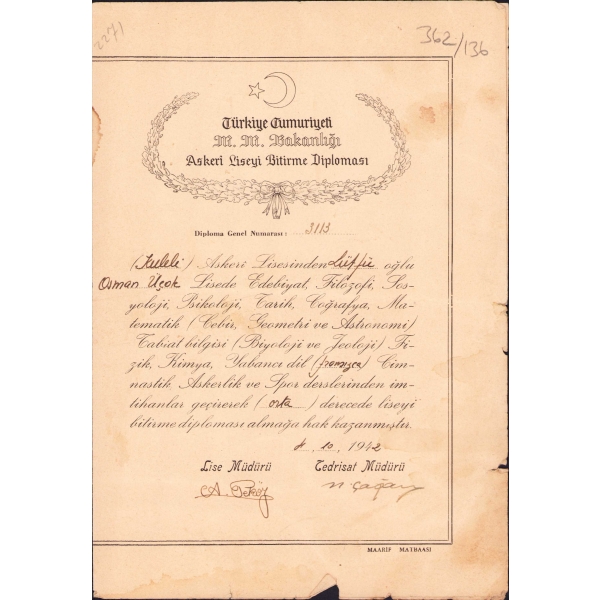 2271
362/136
Türkiye Cumuriyeti
M. M. Bakanlığı
Askeri Liseyi Bitirme Diploması
Diploma Genel Numarası: 3113
(Kuleli) Askerî Lisesinden Lütfü oğlu
Osman Üçok Lisede Edebiyat, Filozofi, Sos-
yoloji, Psikoloji, Tarih, Coğrafya, Ma-
tematik (Cebir, Geometri ve Astronomi)
Tabiat bilgisi (Biyoloji ve Jeoloji) Fi-
zik, Kimya, Yabancı dil (fransızca) Cim-
nastik, Askerlik ve Spor derslerinden im-
tihanlar geçirerek (orta) derecede liseyi
bitirme diploması almağa hak kazanmıştır.
10, 1942
Lise Müdürü Tedrisat Müdürü
N. Çağan
MAARİF MATBAASI